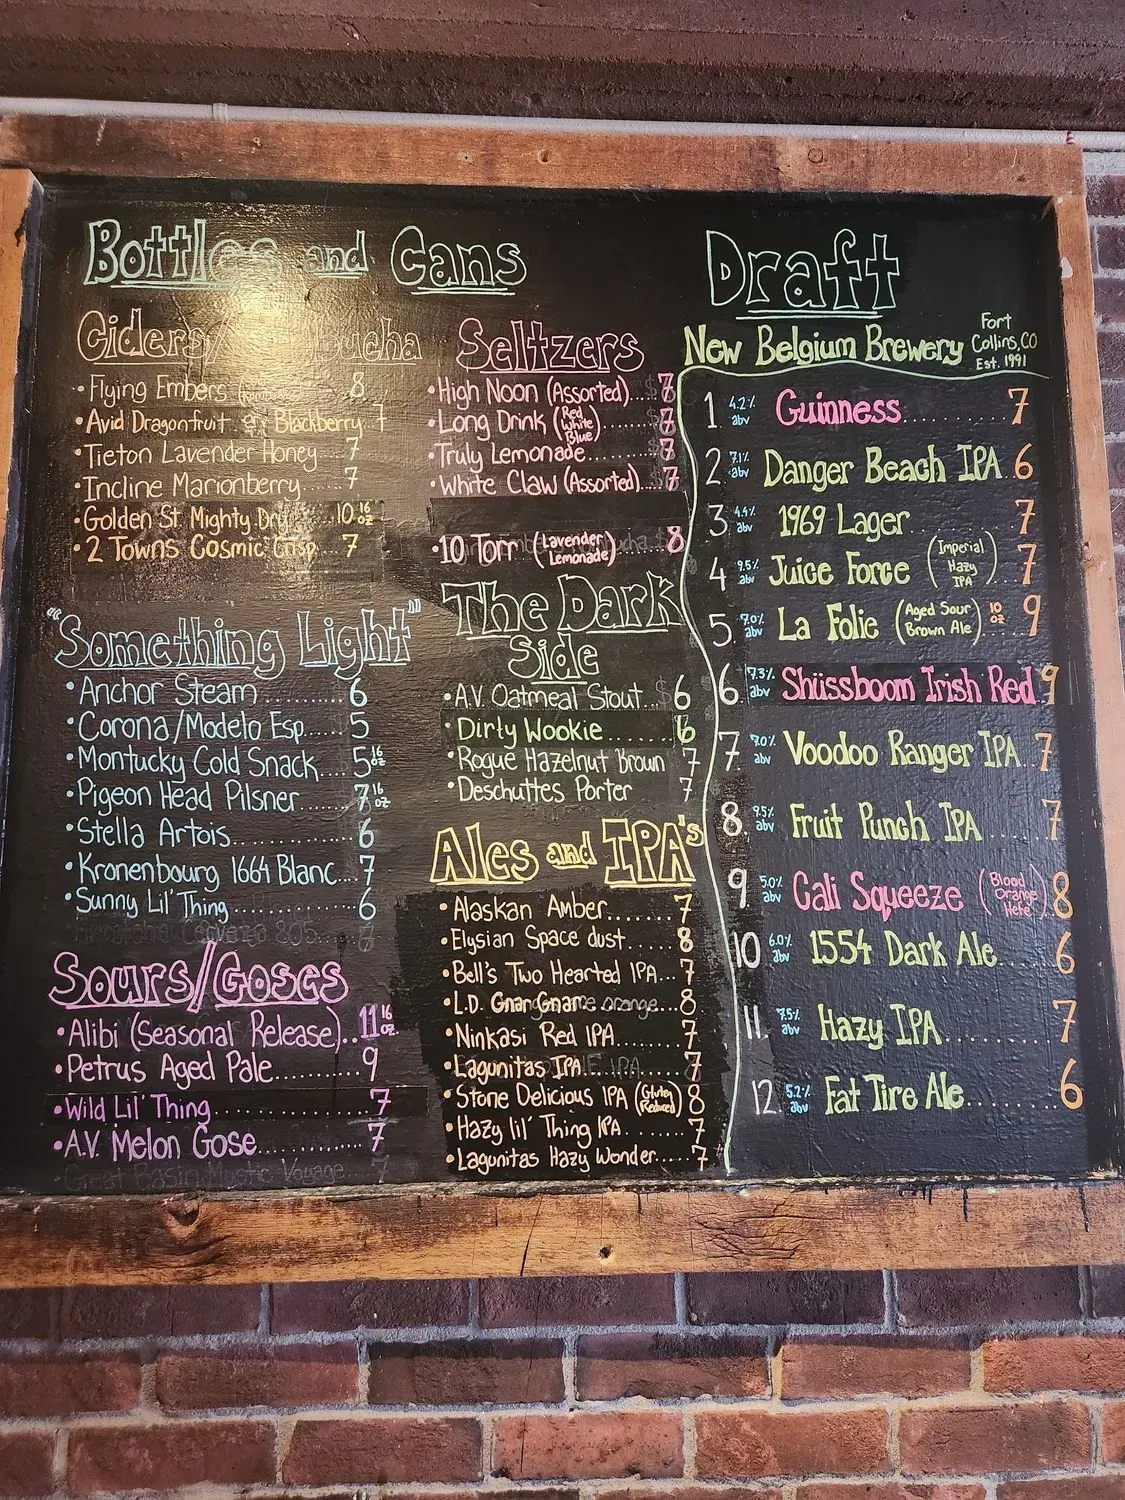 Bottles and Cans
Ciders/
Flying Embers 8
Avid Dragonfruit & Blackberry 7
Tieton Lavender Honey 7
Incline Marionberry 7
Golden St. Mighty Dry 10 16 oz
2 Towns Cosmic Crisp 7
"Something Light"
Anchor Steam 6
Corona/Modelo Esp. 5
Montucky Cold Snack 5 16 oz
Pigeon Head Pilsner 7 16 oz
Stella Artois 6
Kronenbourg 1664 Blanc 7
Sunny Lil' Thing 6
Sours/Goses
Alibi (Seasonal Release) 11 16 oz.
Petrus Aged Pale 9
Wild Lil' Thing 7
A.V. Melon Gose 7
Great Basin Mystic Voyage 7
Seltzers
High Noon (Assorted) 7
Long Drink (Red White Blue) 7
Truly Lemonade 7
White Claw (Assorted) 7
10 Torr (Lavender Lemonade) 8
The Dark
Side
A.V. Oatmeal Stout 6
Dirty Wookie 6
Rogue Hazelnut Brown 7
Deschuttes Porter 7
Ales and IPA's
Alaskan Amber 7
Elysian Space dust 8
Bell's Two Hearted IPA 7
L.D. GnarGnar 8
Ninkasi Red IPA 7
Lagunitas IPA 7
Stone Delicious IPA (Gluten Reduced) 8
Hazy lil' Thing IPA 7
Lagunitas Hazy Wonder 7
Draft
New Belgium Brewery Fort Collins, CO Est. 1991
1 4.2% abv Guinness 7
2 7.1% abv Danger Beach IPA 6
3 4.4% abv 1969 Lager 7
4 9.5% abv Juice Force (Imperial Hazy IPA) 7
5 7.0% abv La Folie (Aged Sour Brown Ale) 10 oz 9
6 7.3% abv Shüssboom Irish Red 9
7 7.0% abv Voodoo Ranger IPA 7
8 9.5% abv Fruit Punch IPA 7
9 5.0% abv Cali Squeeze (Blood Orange Hefe) 8
10 6.0% abv 1554 Dark Ale 6
11. 7.5% abv Hazy IPA 7
12. 5.2% abv Fat Tire Ale 6